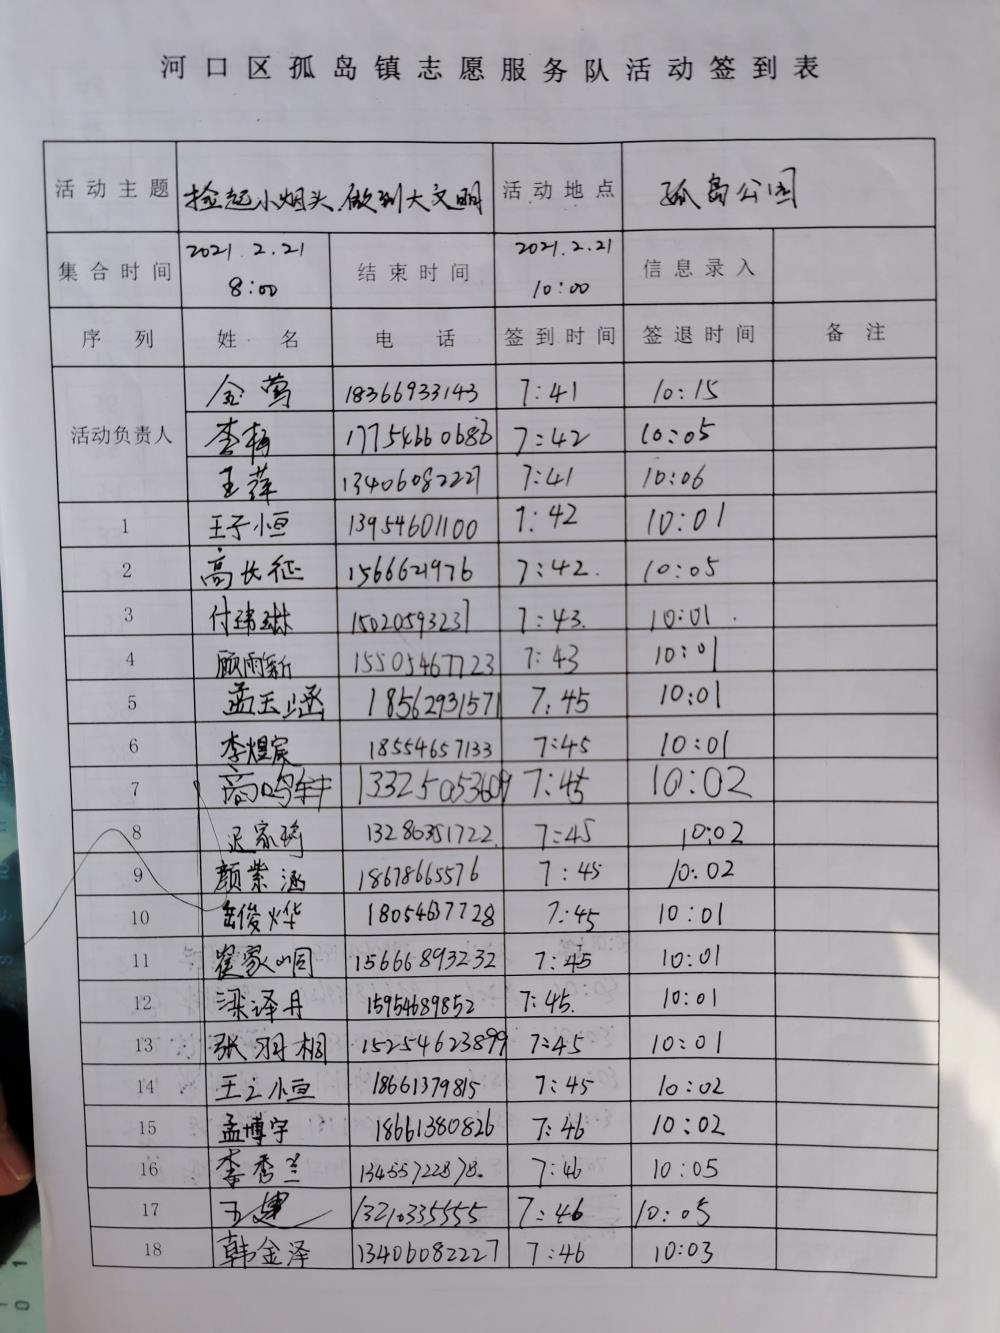 河口区孤岛镇志愿服务队活动签到表
活动主题 捡起小烟头,做到大文明 活动地点 孤岛公园
集合时间 2021.2.21 8:00 结束时间 2021.2.21 10:00 信息录入
序列 姓名 电话 签到时间 签退时间 备注
活动负责人
金莺 18366933143 7:41 10:15
李梅 7:42 10:05
王萍 13406082227 7:41 10:06
1 王子恒 13954601100 7:42 10:01
2 高长征 1566621976 7:42. 10:05
3 付琳 15020593237 7:43. 10:01.
4 顾雨新 15505467723 7:43 10:01
5 孟玉涵 18562931571 7:45 10:01
6 李煜宸 18554657133 7:45 10:01
7 高鸣轩 13325053609 7:45 10:02
8 迟家琦 13280351722 7:45 10:02
9 颜紫涵 18678665576 7:45 10:02
10 岳俊烨 18054637728 7:45 10:01
11 崔家 15666893232 7:45 10:01
12 梁译丹 15954689852 7:45. 10:01
13 张羽桐 15254623899 7:45 10:01
14 王之恒 18661379815 7:45 10:02
15 孟博宇 18661380826 7:46 10:02
16 李秀兰 13455722878. 7:46 10:05
17 王建 13210335555 7:46 10:05
18 韩金泽 13406082227 7:46 10:03
0 1